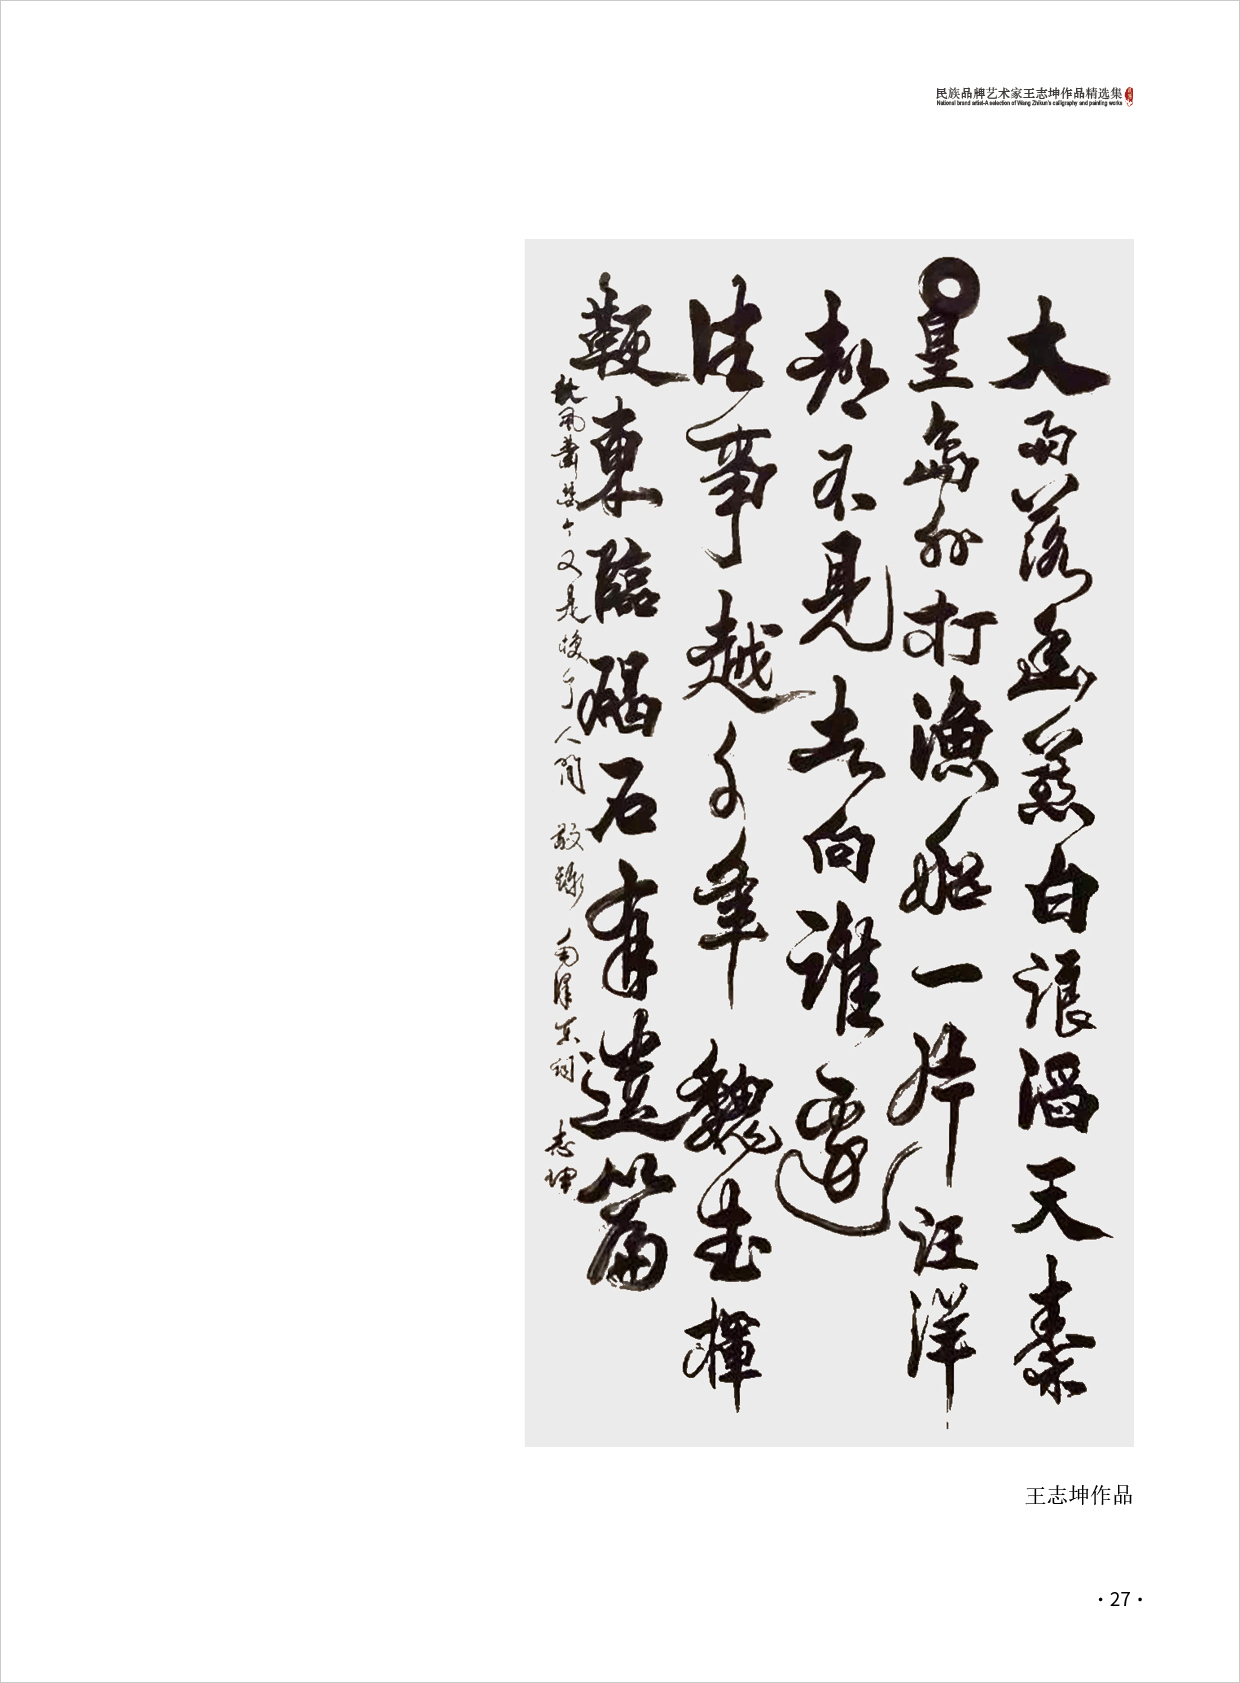 民族品牌艺术家王志坤作品精选集
National brand artist-A selection of Wang Zhikun's calligraphy and painting works
大雨落幽燕白浪滔天秦
皇島外打漁船一片汪洋
都不見去向誰邊
往事越千年魏武揮
鞭東臨碣石有遺篇
秋風蕭瑟今又是換了人間 敬錄 毛澤東詞 志坤
王志坤作品
·27·